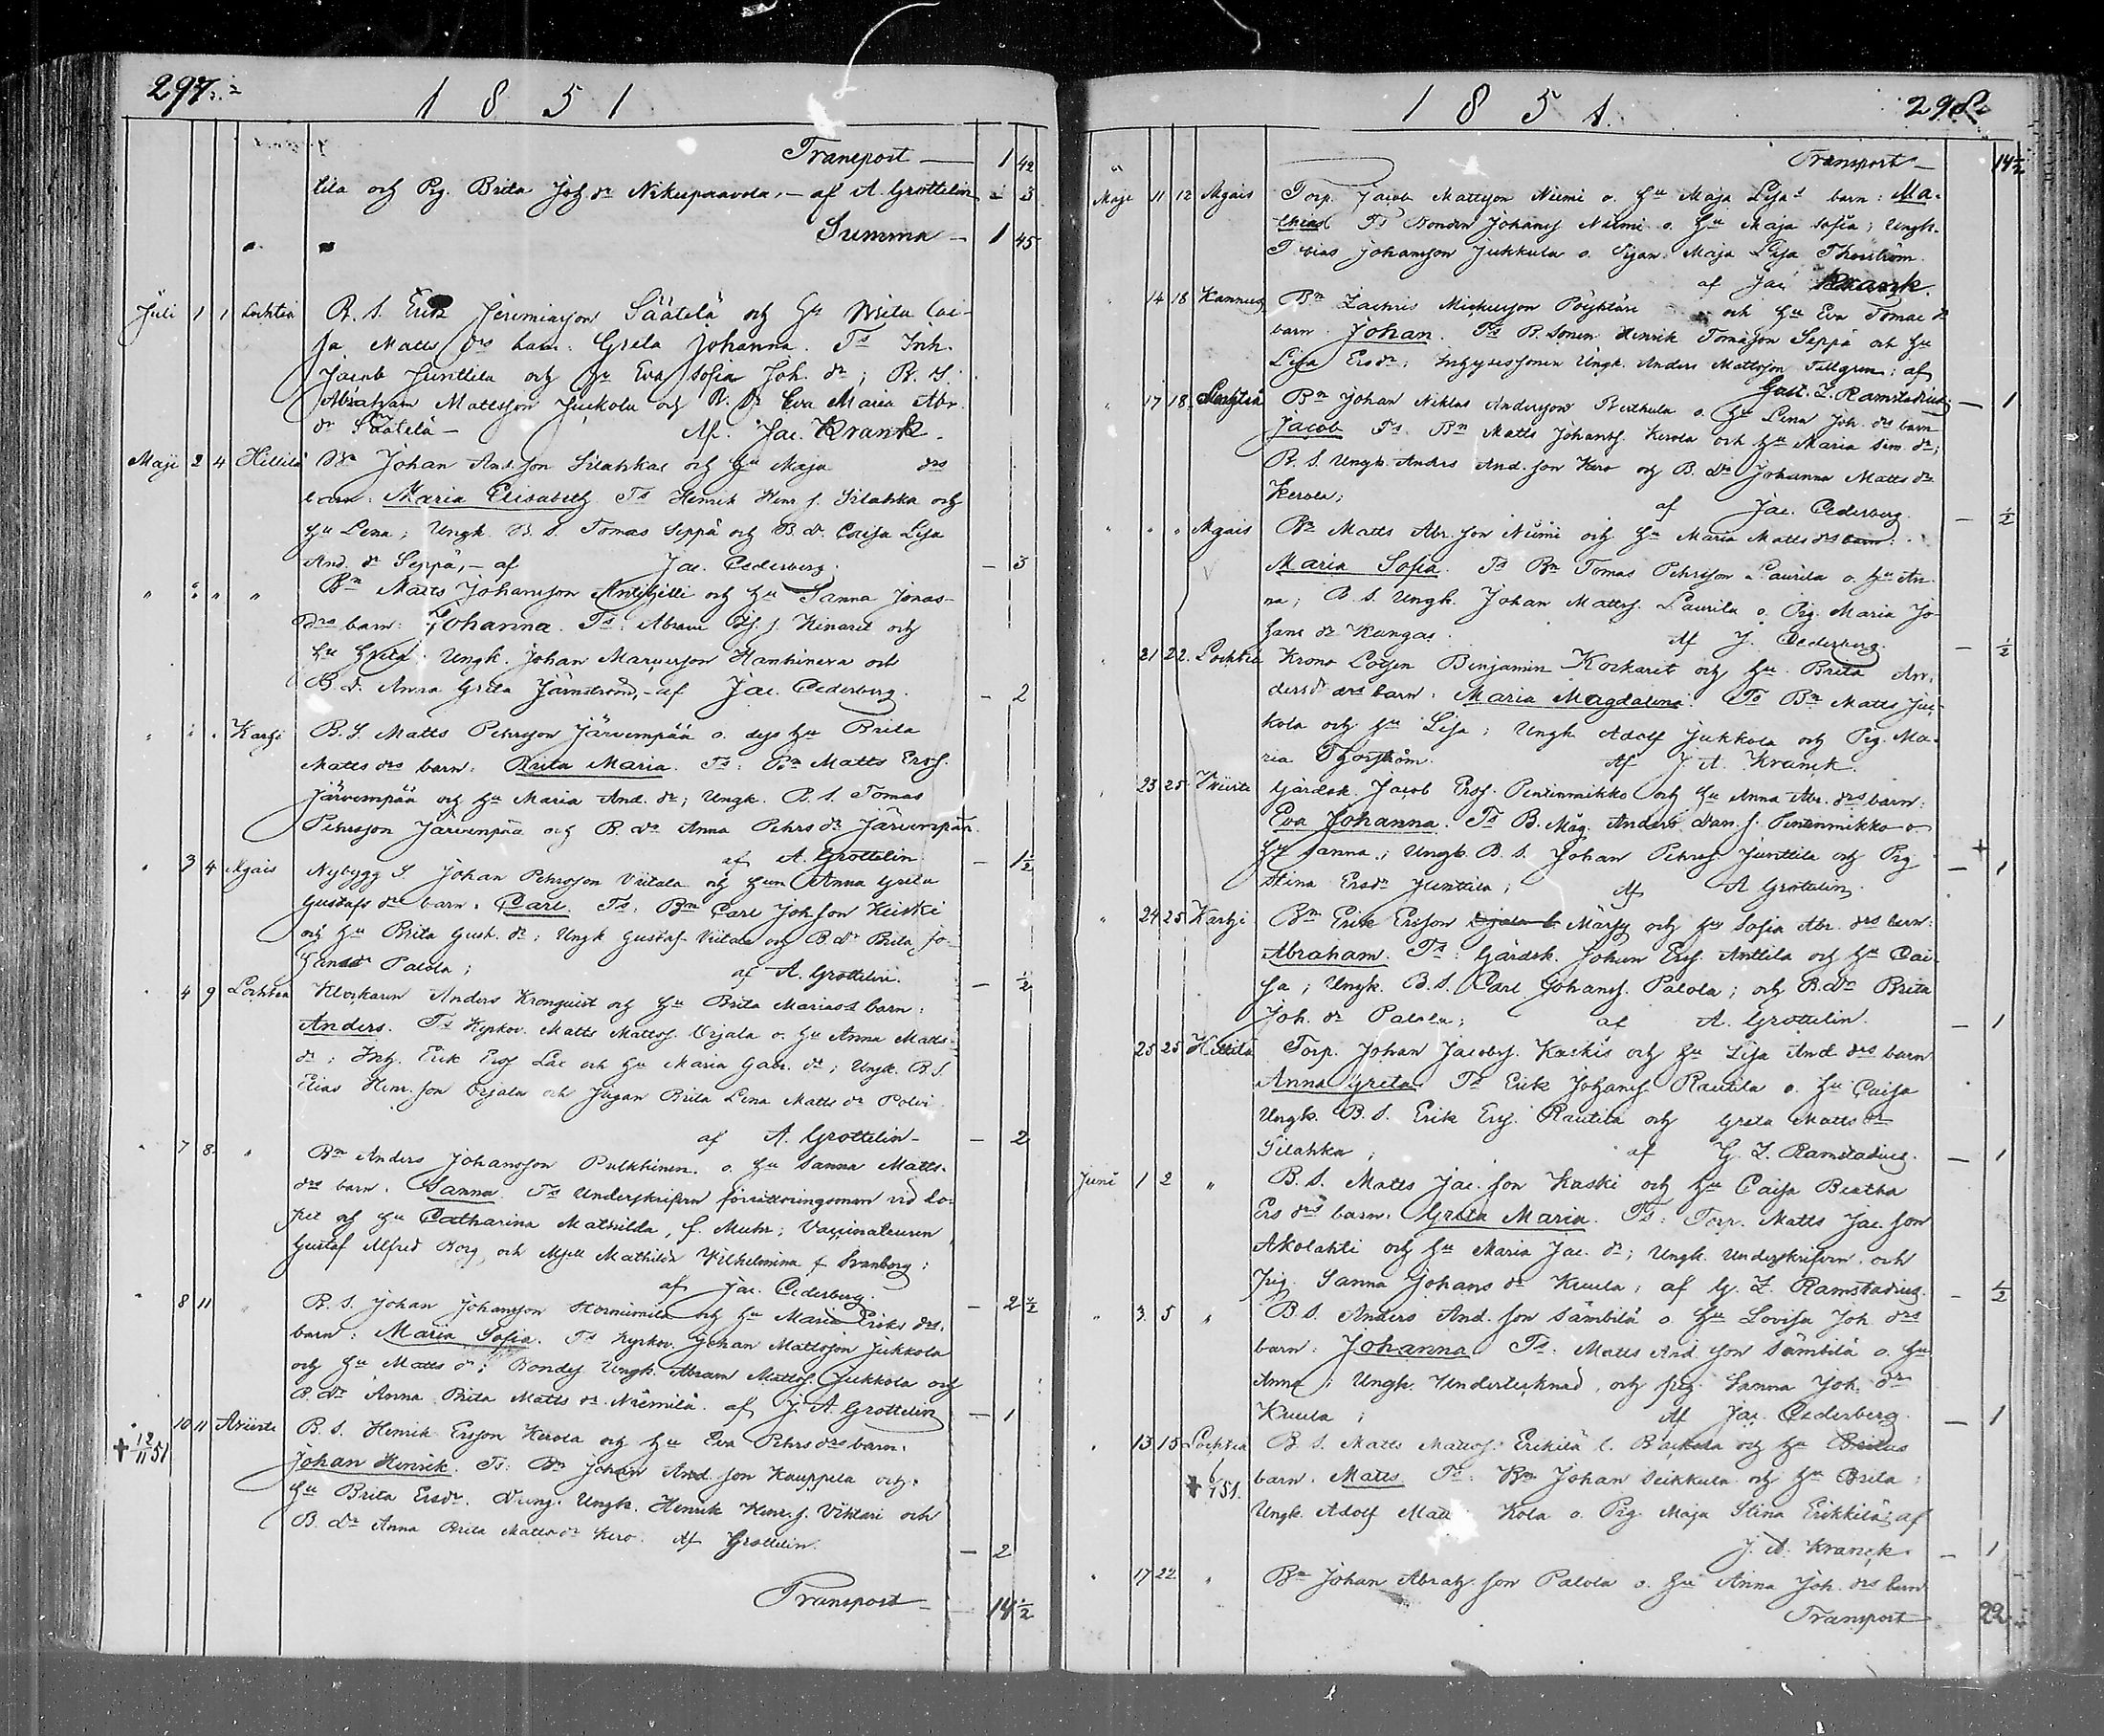 297.
1851
Transport — 1 42
tila och Pig. Brita Joh. dr Nikupaavola, — af A. Grottelin — 3
Summa — 1 45
Juli 1 1 Lochteå B. S. Erik Jeremiasson Säätelä och Hu Brita Cai-
sa Matts drs barn: Greta Johanna. Ts Inh.
Jacob Junttila och Hu Eva Sofia Joh. dr; B. S.
Abraham Mattsson Juckola och B. Dr Eva Maria Abr.
dr Säätelä — Af. Jac. Kranck.
Maji 2 4 Hillilä Bn Johan And. son Silahka och Hu Maja drs
barn: Maria Elisabeth. Ts Henrik Henr. s. Silahka och
Hu Lena; Ungk. B. S. Tomas Seppä och B. dr Caisa Lisa
And. dr Seppä, — af Jac. Cederberg. — 3
" " " " Bn Matts Johansson Anttihilli och Hu Sanna Jonas-
drs barn: Johanna. Ts. Abram s. Kinaret och
Hu Greta. Ungk. Johan Hanhineva och
B. d. Anna Greta Järnström, — af Jac. Cederberg. — 2
" " " Karhi B. S. Matts Pehrsson Järvempää o. dess hu Brita
Matts drs barn: Brita Maria. Ts: Bn Matts Erss.
Järvempää och hu Maria And. dr; Ungk. B. S. Tomas
Pehrsson Järvenpää och B. dr Anna Pehrs dr Järvenpää.
af A. Grottelin — 1½
" 3 4 Algais Nybygg S Johan Pehrsson Viitala och hun Anna Greta
Gustafs dr barn: Carl. Ts: Bn Carl Joh. son Keiski
och hu Brita Gust. dr; Ungk Gustaf Viitala och B. dr Brita Jo-
hansdr Palola; af A. Grottelin. — ½
" 4 9 Lochteå Klockaren Anders Kronquist och hu Brita Marias barn:
Anders. Ts Kyrkov. Matts Mattss. Orjala o. hu Anna Matts
dr; Inh. Erik Erss Lae och hu Maria Gabr. dr; Ungk. B. S.
Elias Henr. son Orjala och Pigan Brita Lena Matts dr Polvi
af A. Grottelin — — 2
" 7 8 " Bn Anders Johansson Pulkkinen o. hu Sanna Matts-
drs barn: Sanna. Ts Underskrifven förrättningsman vid do-
pet och hu Catharina Mathilda, f. Muhr; Vaccinateuren
Gustaf Alfred Borg, och Mjll Mathilda Vilhelmina f. Svanberg;
af Jac. Cederberg. — 2½
" 8 11 " B. S. Johan Johansson Hornimila och hu Maria Eriks drs
barn: Maria Sofia. Ts Kyrkov. Johan Mattsson Jukkola
och hu Matts dr; Bondes. Ungk. Abram Mattss. Jukkola och
B. dr Anna Brita Matts dr Niemilä. af J. A. Grottelin — 1
" 10 11 Aivirta B. S. Henrik Ersson Kerola och hu Eva Pehrs drs barn:
+ 12/11 51 Johan Henrik. Ts: Bn Johan And. son Kauppila och
hu Brita Ersdr. Dreng. Ungk. Henrik Henr. s. Viktari och
B. dr Anna Brita Matts dr Kero. Af Grottelin. — 2
Transport — 14½
1851.
298
Transport — 14½
Maji 11 12 Algais Torp. Jacob Mattsson Niemi o. hu Maja Lisas barn: Ma-
thias Ts Bonden Johans Niemi o. hu Maja Sofia; Ungk.
Tobias Johansson Jukkula o. Pigan Maja Lisa Thorström.
af Jac. Kranck.
" 14 18 Kannus Bn Zachris Mickelsson Pöyhtäri och hu Eva Tomae dr
barn: Johan. Ts B. Sonen Henrik Tomasson Seppä och hu
Lisa Ersdr; Inhysessonen Ungk. Anders Mattsson Tallgren: af
Gust. Z. Ramstadius — 1
" 17 18 Lochteå Bn Johan Niklas Andersson Berthula o. hu Lena Joh. drs barn
Jacob Ts. Bn Matts Johanss. Kerola och hu Maria Sim. dr;
B. S. Ungk. Anders And. son Kero och B. dr Johanna Matts dr
Kerola; af Jac. Cederberg. — ½
" " " Algais Bn Matts Abr. son Niemi och hu Maria Matts drs barn:
Maria Sofia. Ts Bn Tomas Pehrsson Laurila o. hu An-
na; B. S. Ungk. Johan Mattss. Laurila o. Pig. Maria Jo-
hans dr Kangas. Af J. Cederberg. — ½
" 21 22 Lochteå Krono Lotsen Benjamin Kockaret och hu Brita An-
dersdr drs barn: Maria Magdalena. Ts Bn Matts Juc-
kola och hu Lisa; Ungk. Adolf Jukkola och Pig. Ma-
ria Thorström. Af J. A. Kranck.
" 23 25 Gårdsk. Jacob Erss. Pentinmikko och hu Anna Abr. drs barn:
Eva Johanna. Ts B. Måg. Anders Dan. s. Pentinmikko o.
hu Sanna; Ungk. B. S. Johan Pehrss. Junttila och Pig +
Stina Ersdr Junttila; af A. Grottelin. — 1
" 24 25 Karhi Bn Erik Ersson Märsy och hu Sofia Abr. drs barn:
Abraham. Ts: Gårdsk. Johan Erss. Anttila och hu Cai-
sa; Ungk. B. S. Carl Johanss. Palola; och B. dr Brita
Joh. dr Palola; af A. Grottelin. — 1
25 25 Hillilä Torp. Johan Jacobs. Kaskis och hu Lisa And. drs barn
Anna Greta. Ts Erik Johanss. Rautila o. hu Caisa
Ungk. B. S. Erik Erss. Rautila och Greta Matts dr
Silahka; af G. Z. Ramstadius. — 1
Juni 1 2 " B. S. Matts Jac. son Kaski och hu Caisa Beatha
Ers drs barn. Greta Maria. Ts: Torp. Matts Jac. son
Akolahti och hu Maria Jac. dr; Ungk. Underskrifven och
Pig. Sanna Johans dr Kuula; af G. Z. Ramstadius — ½
" 3 5 " B. S. Anders And. son Sämbilä o. hu Lovisa Joh. drs
barn: Johanna Ts: Matts And. son Sämbilä o. hu
Anna; Ungk. Undertecknad, och pig. Sanna Joh. dr
Kuula; Af Jac. Cederberg. — 1
" 13 15 Lochteå B. S. Matts Mattss. Erikilä l. och hu Britas
+ barn: Matts. Ts: Bn Johan Seikkula och hu Brita;
Ungk. Adolf Matt Kola o. Pig Maja Stina Erikkilä; af
J. A. Kranck. — 1
" 17 22 " Bn Johan Abrah. son Palola o. hu Anna Joh. drs barn
Transport 22